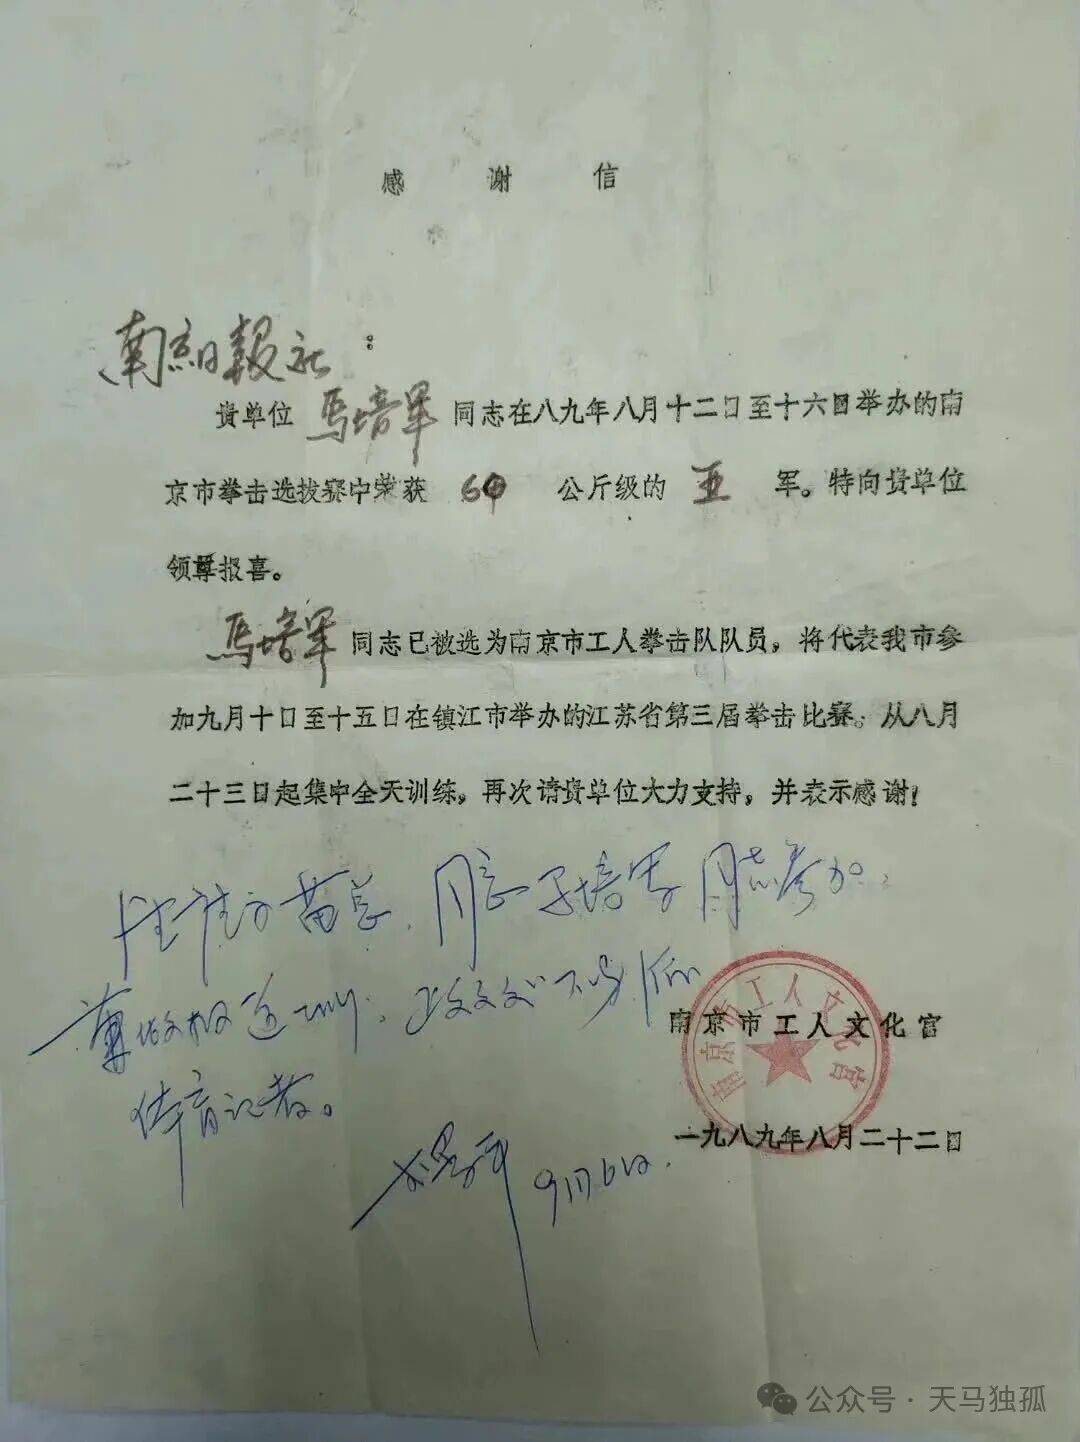 感谢信
南京日報社：
贵单位马培军同志在八九年八月十二日至十六日举办的南
京市拳击选拔赛中荣获 60 公斤级的 亚 军。特向贵单位
领导报喜。
马培军同志已被选为南京市工人拳击队队员，将代表我市参
加九月十日至十五日在镇江市举办的江苏省第三届拳击比赛。从八月
二十三日起集中全天训练，再次请贵单位大力支持，并表示感谢！
苗总，同意马培军同志参加
体育记者。
9月6日.
南京市工人文化宫
南京市工人文化宫
一九八九年八月二十二日
公众号·天马独孤